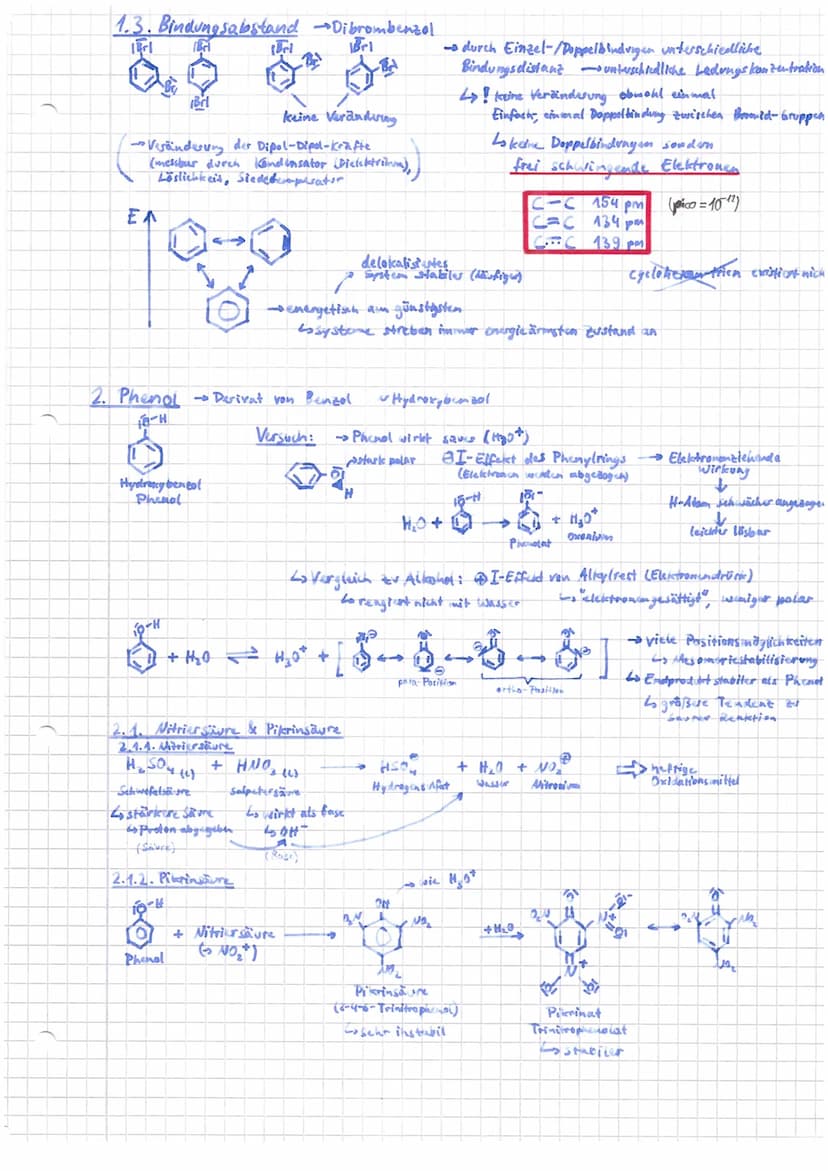 1.3. Bindungsabstand → Dibrombenzol
|Br| |Br| |Br| |Br|
Br Br Br
|Br|
keine Veränderung
→ durch Einzel-/Doppelbindungen unterschiedliche
Bindungsdistanz → unterschiedliche Ladungskonzentration
↳ ! keine Veränderung obwohl einmal
Einfach, einmal Doppelbindung zwischen Bromid-Gruppen
↳ keine Doppelbindungen sondern
frei schwingende Elektronen
(→ Veränderung der Dipol-Dipol-Kräfte
(messbar durch Kondensator (Dielektrikum),
Löslichkeit, Siedetemperatur)
C−C 154 pm (pico = 10⁻¹²)
C=C 134 pm
C⋯C 139 pm
E
delokalisiertes
System stabiler (häufiger)
existiert nich
→ energetisch am günstigsten
↳ Systeme streben immer energieärmsten Zustand an
2. Phenol → Derivat von Benzol Hydroxybenzol
|O−H
Hydroxybenzol
Phenol
Versuch: → Phenol wirkt sauer (H₃O⁺)
stark polar
O
H
⊖I-Effekt des Phenylrings → Elektronenziehende
(Elektronen werden abgezogen) Wirkung
↓
H-Atom schwächer angezogen
↓
leichter lösbar
H₂O + O−H → |O|⁻ + H₃O⁺
Phenolat Oxonium
↳ Vergleich zu Alkohol: ⊕I-Effekt von Alkylrest (Elektronendrück)
↳ reagiert nicht mit Wasser ↳ "elektronengesättigt", weniger polar
O−H
+ H₂O ⇌ H₃O⁺ + [ ↔ ↔ ↔ ]
para-Position ortho-Position
→ viele Positionsmöglichkeiten
↳ Mesomeriestabilisierung
↳ Endprodukt stabiler als Phenol
↳ größere Tendenz zu
saurer Reaktion
2.1. Nitriersäure & Pikrinsäure
2.1.1. Nitriersäure
H₂SO₄ (l) + HNO₃ (l) → HSO₄⊖ + H₂O + NO₂⊕ ⇒ heftige
Schwefelsäure Salpetersäure Hydrogensulfat Wasser Nitronium Oxidationsmittel
↳ stärkere Säure ↳ wirkt als Base
↳ Proton abgegeben ↳ OH⁻
(Säure) (Base)
2.1.2. Pikrinsäure
→ wie H₃O⁺
O−H
+ Nitriersäure →
(→ NO₂⁺)
Phenol
OH
O₂N NO₂
NO₂
Pikrinsäure
(2-4-6-Trinitrophenol)
↳ sehr instabil
+H₂O →
O₂N N⁺
N⁺
Pikrinat
Trinitrophenolat
↳ stabiler
↔
O₂N NO₂
NO₂